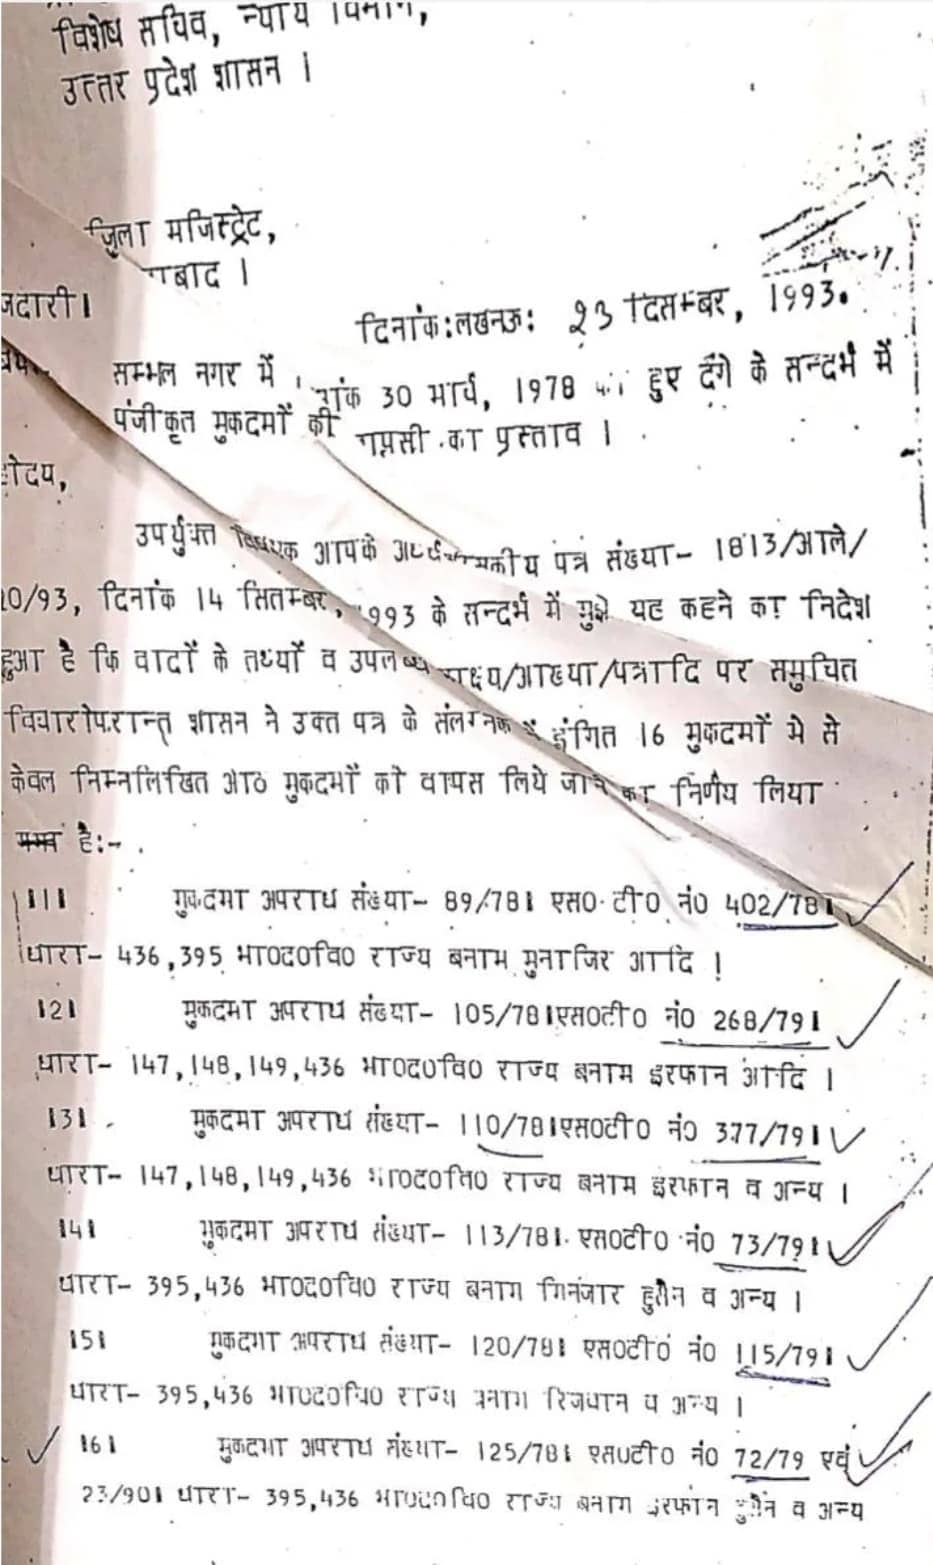 विशेष सचिव, न्याय विभाग,
उत्तर प्रदेश शासन ।
जिला मजिस्ट्रेट,
ाबाद ।
जदारी।
दिनांक:लखनऊ: 23 दिसम्बर, 1993.
सम्भल नगर में 30 मार्च, 1978 हुए दंगे के सन्दर्भ में
पंजीकृत मुकदमों की का प्रस्ताव ।
होदय,
उपर्युक्त विषयक आपके पत्र संख्या- 1813/आले/
10/93, दिनांक 14 सितम्बर, 1993 के सन्दर्भ में मुझे यह कहने का निदेश
हुआ है कि वादों के तथ्यों व उपलब्ध साक्ष्य/आख्या/पत्रादि पर समुचित
विचारोपरान्त शासन ने उक्त पत्र के संलग्नक में इंगित 16 मुकदमों मे से
केवल निम्नलिखित आठ मुकदमों को वापस लिये जाने का निर्णय लिया
है:-
111 मुकदमा अपराध संख्या- 89/781 एस0 टी0 नं0 402/781
धारा- 436,395 भा0द0वि0 राज्य बनाम मुनाजिर आदि ।
121 मुकदमा अपराध संख्या- 105/781एस0टी0 नं0 268/791
धारा- 147,148,149,436 भा0द0वि0 राज्य बनाम इरफान आदि ।
131 मुकदमा अपराध संख्या- 110/781एस0टी0 नं0 377/791
धारा- 147,148,149,436 भा0द0वि0 राज्य बनाम इरफान व अन्य ।
141 मुकदमा अपराध संख्या- 113/781 एस0टी0 नं0 73/791
धारा- 395,436 भा0द0वि0 राज्य बनाम हुसैन व अन्य ।
151 मुकदमा अपराध संख्या- 120/781 एस0टी0 नं0 115/791
धारा- 395,436 भा0द0वि0 राज्य बनाम रिजवान व अन्य ।
161 मुकदमा अपराध संख्या- 125/781 एस0टी0 नं0 72/79 एवं
23/901 धारा- 395,436 भा0द0वि0 राज्य बनाम इरफान हुसैन व अन्य